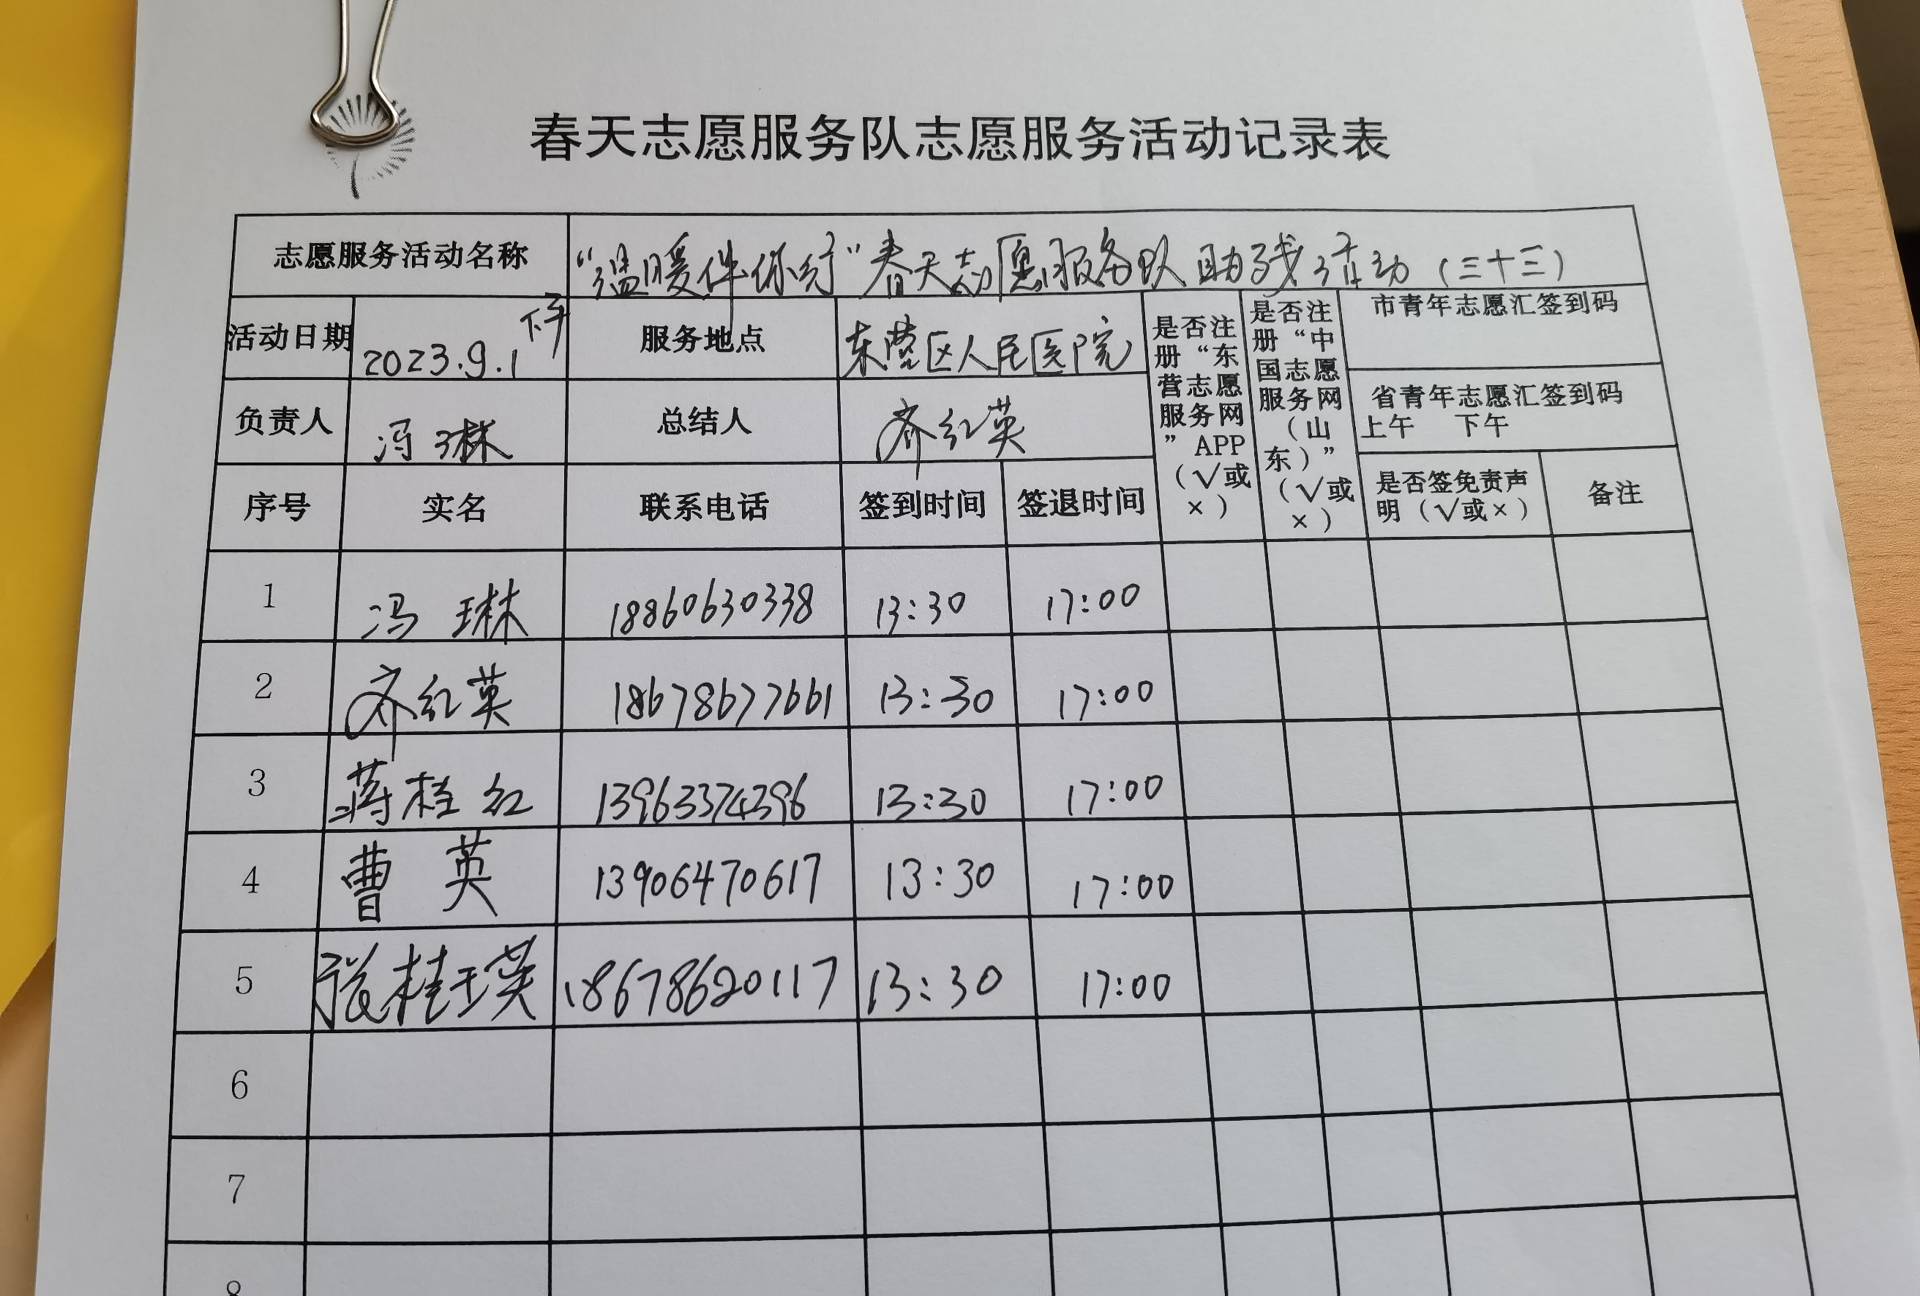 春天志愿服务队志愿服务活动记录表
志愿服务活动名称 “温暖伴你行”春天志愿服务队助残活动（三十三）
活动日期 2023.9.1下午 服务地点 东营区人民医院
是否注册“东营志愿服务网”APP（√或×）
是否注册“中国志愿服务网（山东）”（√或×）
市青年志愿汇签到码
省青年志愿汇签到码
上午 下午
负责人 冯琳 总结人 齐红英
序号 实名 联系电话 签到时间 签退时间 是否签免责声明（√或×） 备注
1 冯琳 18860630338 13:30 17:00
2 齐红英 18678677661 13:30 17:00
3 蒋桂红 13963374396 13:30 17:00
4 曹英 13906470617 13:30 17:00
5 张桂瑛 18678620117 13:30 17:00
6
7
8